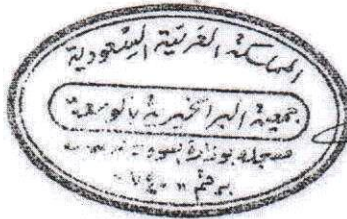 المملكة العربية السعودية
جمعية البر الخيرية بالوسعة
مسجلة بوزارة
برقم